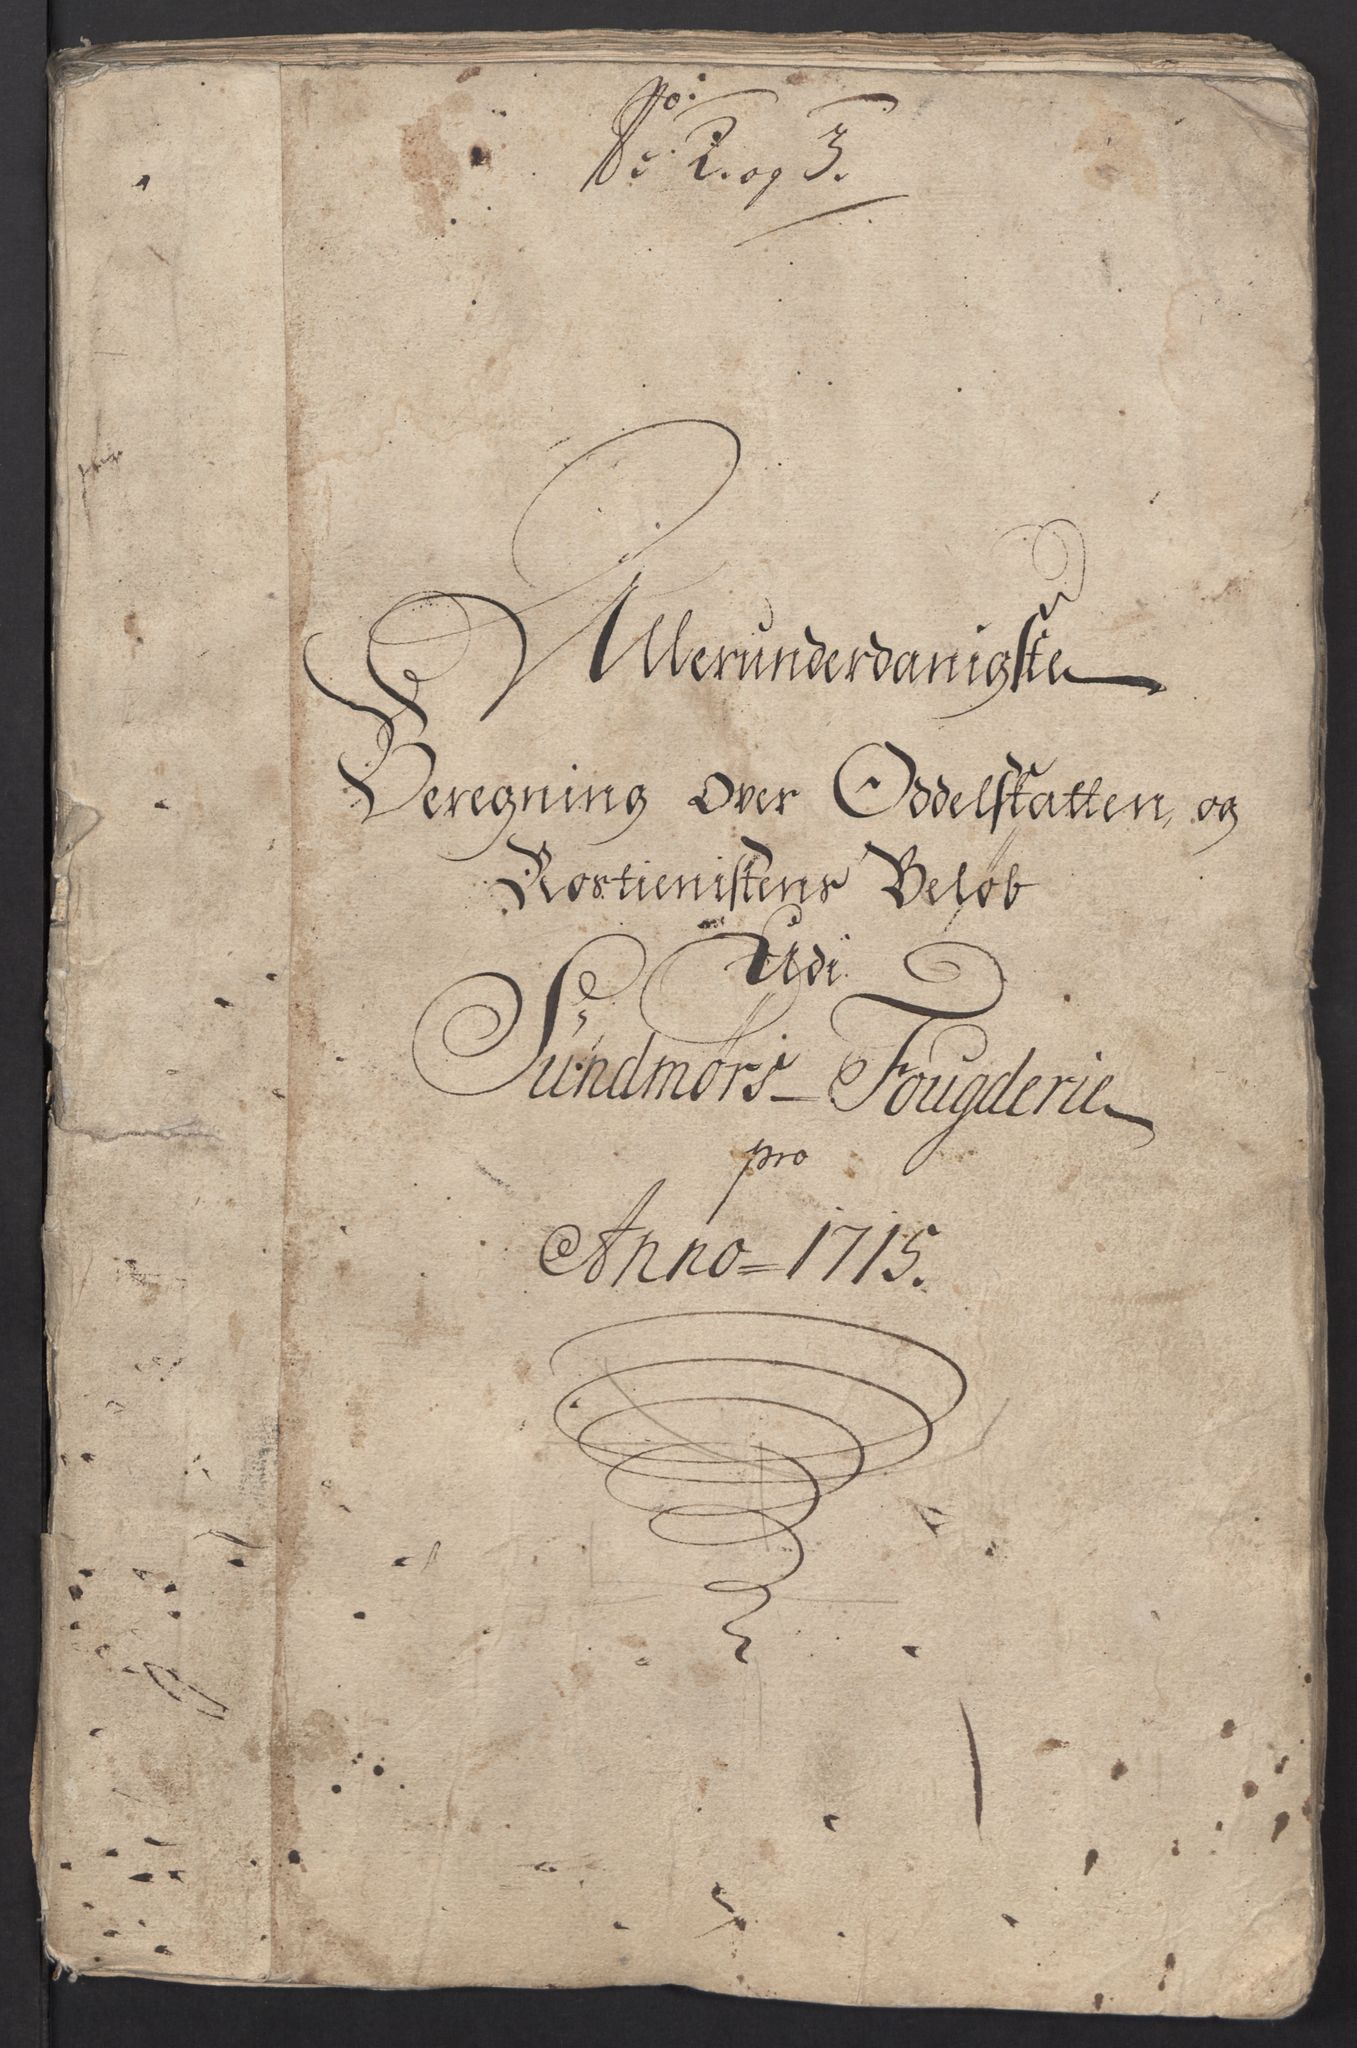 No: 2. og 3.
Allerunderdanigste
Beregning over Oddelskatten, og
Rostienistens Beløb
Udi
Sundmørs Fougderie
pro
Anno = 1715.